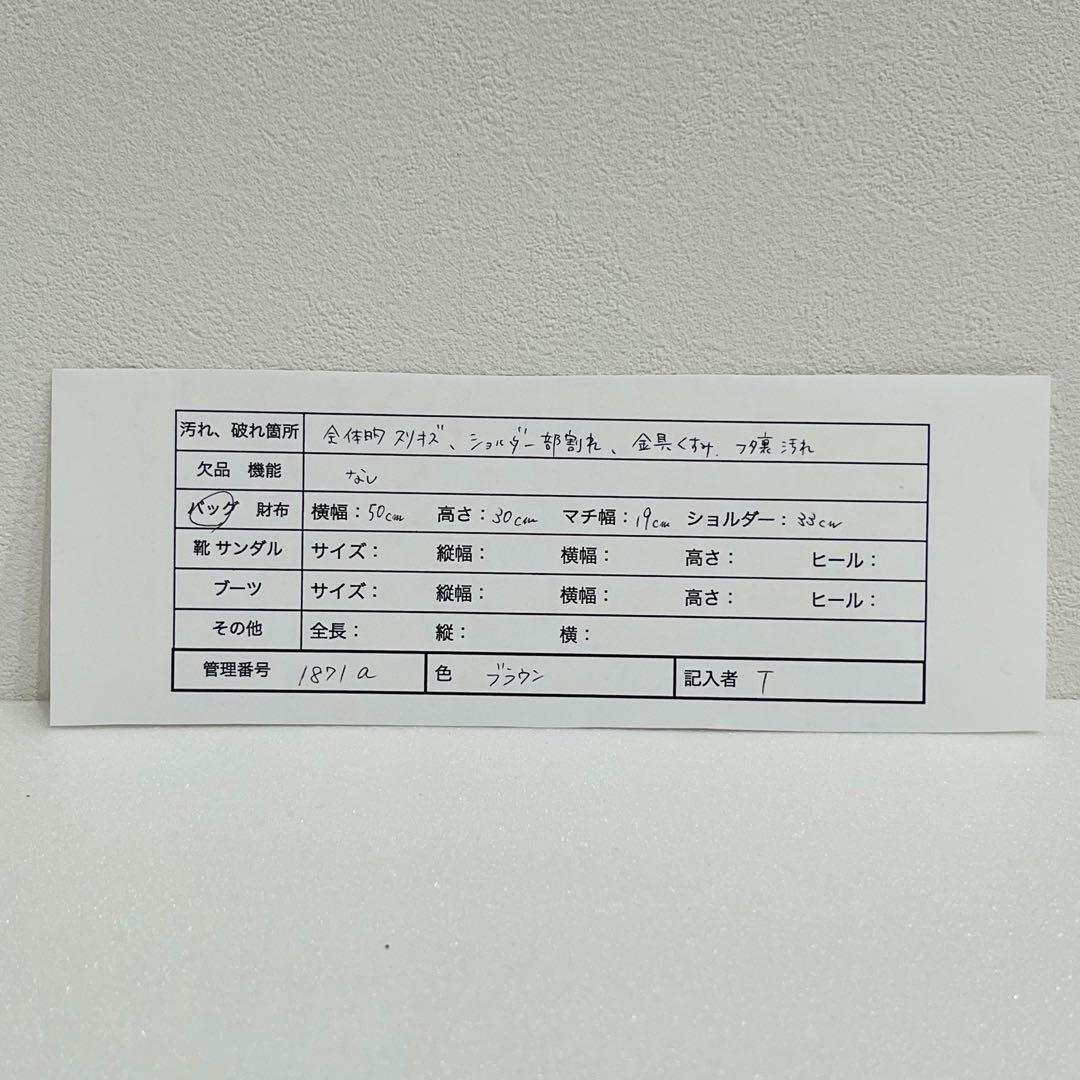 汚れ、破れ箇所 全体的スリキズ、ショルダー部割れ、金具くすみ、フタ裏汚れ
欠品 機能 なし
バッグ 財布 横幅：50cm 高さ：30cm マチ幅：19cm ショルダー：33cm
靴 サンダル サイズ： 縦幅： 横幅： 高さ： ヒール：
ブーツ サイズ： 縦幅： 横幅： 高さ： ヒール：
その他 全長： 縦： 横：
管理番号 1871a 色 ブラウン 記入者 T